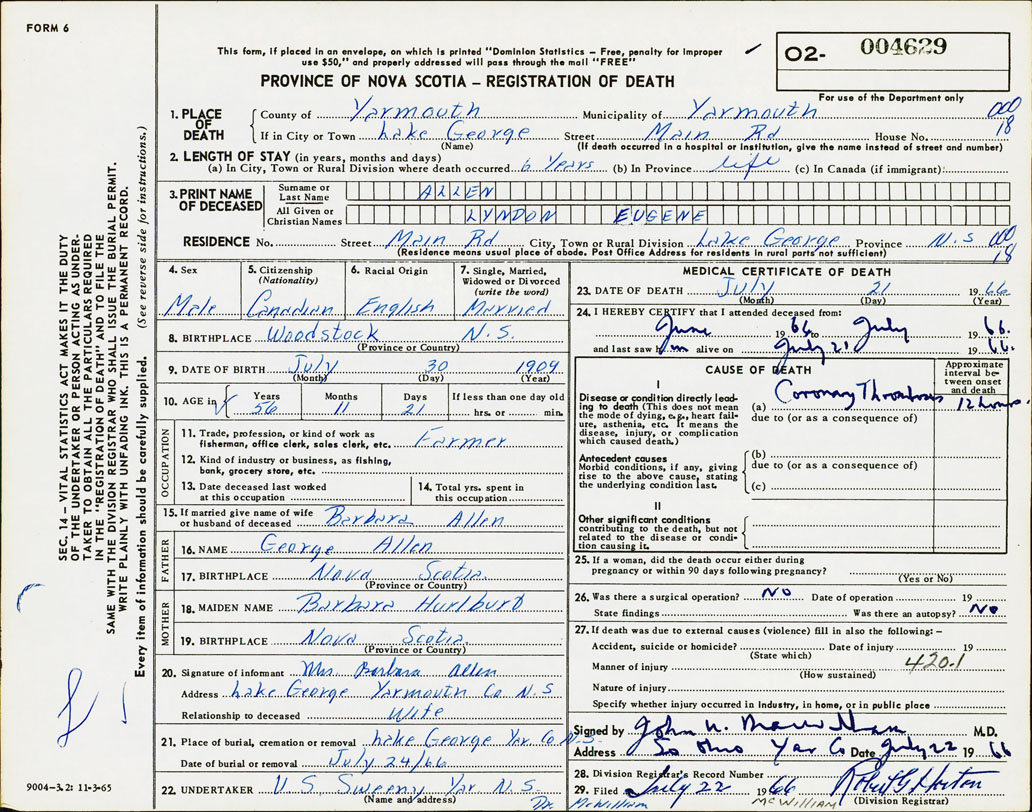 FORM 6
This form, if placed in an envelope, on which is printed "Dominion Statistics – Free, penalty for improper
use $50," and properly addressed will pass through the mail "FREE"
O2- 004629
For use of the Department only
PROVINCE OF NOVA SCOTIA – REGISTRATION OF DEATH
1. PLACE OF DEATH
County of Yarmouth Municipality of Yarmouth 000
If in City or Town Lake George Street Main Rd House No. 18
(Name) (If death occurred in a hospital or institution, give the name instead of street and number)
2. LENGTH OF STAY (in years, months and days)
(a) In City, Town or Rural Division where death occurred 6 Years (b) In Province life (c) In Canada (if immigrant):
3. PRINT NAME OF DECEASED
Surname or Last Name ALLEN
All Given or Christian Names LYNDON EUGENE
RESIDENCE No. Street Main Rd City, Town or Rural Division Lake George Province N.S 000
(Residence means usual place of abode. Post Office Address for residents in rural parts not sufficient) 18
4. Sex 5. Citizenship (Nationality) 6. Racial Origin 7. Single, Married, Widowed or Divorced (write the word)
Male Canadian English Married
8. BIRTHPLACE Woodstock N.S.
(Province or Country)
9. DATE OF BIRTH July 30 1909
(Month) (Day) (Year)
10. AGE in Years Months Days If less than one day old
56 11 21 hrs. or min.
OCCUPATION
11. Trade, profession, or kind of work as
fisherman, office clerk, sales clerk, etc. Farmer
12. Kind of industry or business, as fishing,
bank, grocery store, etc.
13. Date deceased last worked
at this occupation
14. Total yrs. spent in
this occupation
15. If married give name of wife
or husband of deceased Barbara Allen
FATHER
16. NAME George Allen
17. BIRTHPLACE Nova Scotia
(Province or Country)
MOTHER
18. MAIDEN NAME Barbara Hurlburt
19. BIRTHPLACE Nova Scotia
(Province or Country)
20. Signature of informant Mrs. Barbara Allen
Address Lake George Yarmouth Co N.S
Relationship to deceased Wife
21. Place of burial, cremation or removal Lake George Yar Co N.S.
Date of burial or removal July 24/66
22. UNDERTAKER U S Sweeny Yar N.S
(Name and address)
MEDICAL CERTIFICATE OF DEATH
23. DATE OF DEATH July 21 1966
(Month) (Day) (Year)
24. I HEREBY CERTIFY that I attended deceased from:
June 1966 to July 1966.
and last saw him alive on July 21 1966.
CAUSE OF DEATH
Approximate interval between onset and death
I
Disease or condition directly leading
to death (This does not mean
the mode of dying, e.g., heart failure,
asthenia, etc. It means the
disease, injury, or complication
which caused death.)
(a) Coronary Thrombosis 12 hours.
due to (or as a consequence of)
Antecedent causes
Morbid conditions, if any, giving
rise to the above cause, stating
the underlying condition last.
(b)
due to (or as a consequence of)
(c)
II
Other significant conditions
contributing to the death, but not
related to the disease or condition
causing it.
25. If a woman, did the death occur either during
pregnancy or within 90 days following pregnancy?
(Yes or No)
26. Was there a surgical operation? NO Date of operation 19
State findings Was there an autopsy? No
27. If death was due to external causes (violence) fill in also the following: –
Accident, suicide or homicide? Date of injury 19
(State which) 420.1
Manner of injury
(How sustained)
Nature of injury
Specify whether injury occurred in Industry, in home, or in public place
Signed by John M. M.D.
Address So Ohio Yar Co Date July 22 1966
28. Division Registrar's Record Number
29. Filed July 22 1966 Robert G Horton
(Division Registrar)
Dr. McWilliam MCWILLIAM
SEC. 14 – VITAL STATISTICS ACT MAKES IT THE DUTY
OF THE UNDERTAKER OR PERSON ACTING AS UNDERTAKER
TO OBTAIN ALL THE PARTICULARS REQUIRED
IN THE "REGISTRATION OF DEATH" AND TO FILE THE
SAME WITH THE DIVISION REGISTRAR WHO SHALL ISSUE THE BURIAL PERMIT.
WRITE PLAINLY WITH UNFADING INK. THIS IS A PERMANENT RECORD.
Every item of information should be carefully supplied. (See reverse side for instructions.)
9004-3.2: 11-3-65